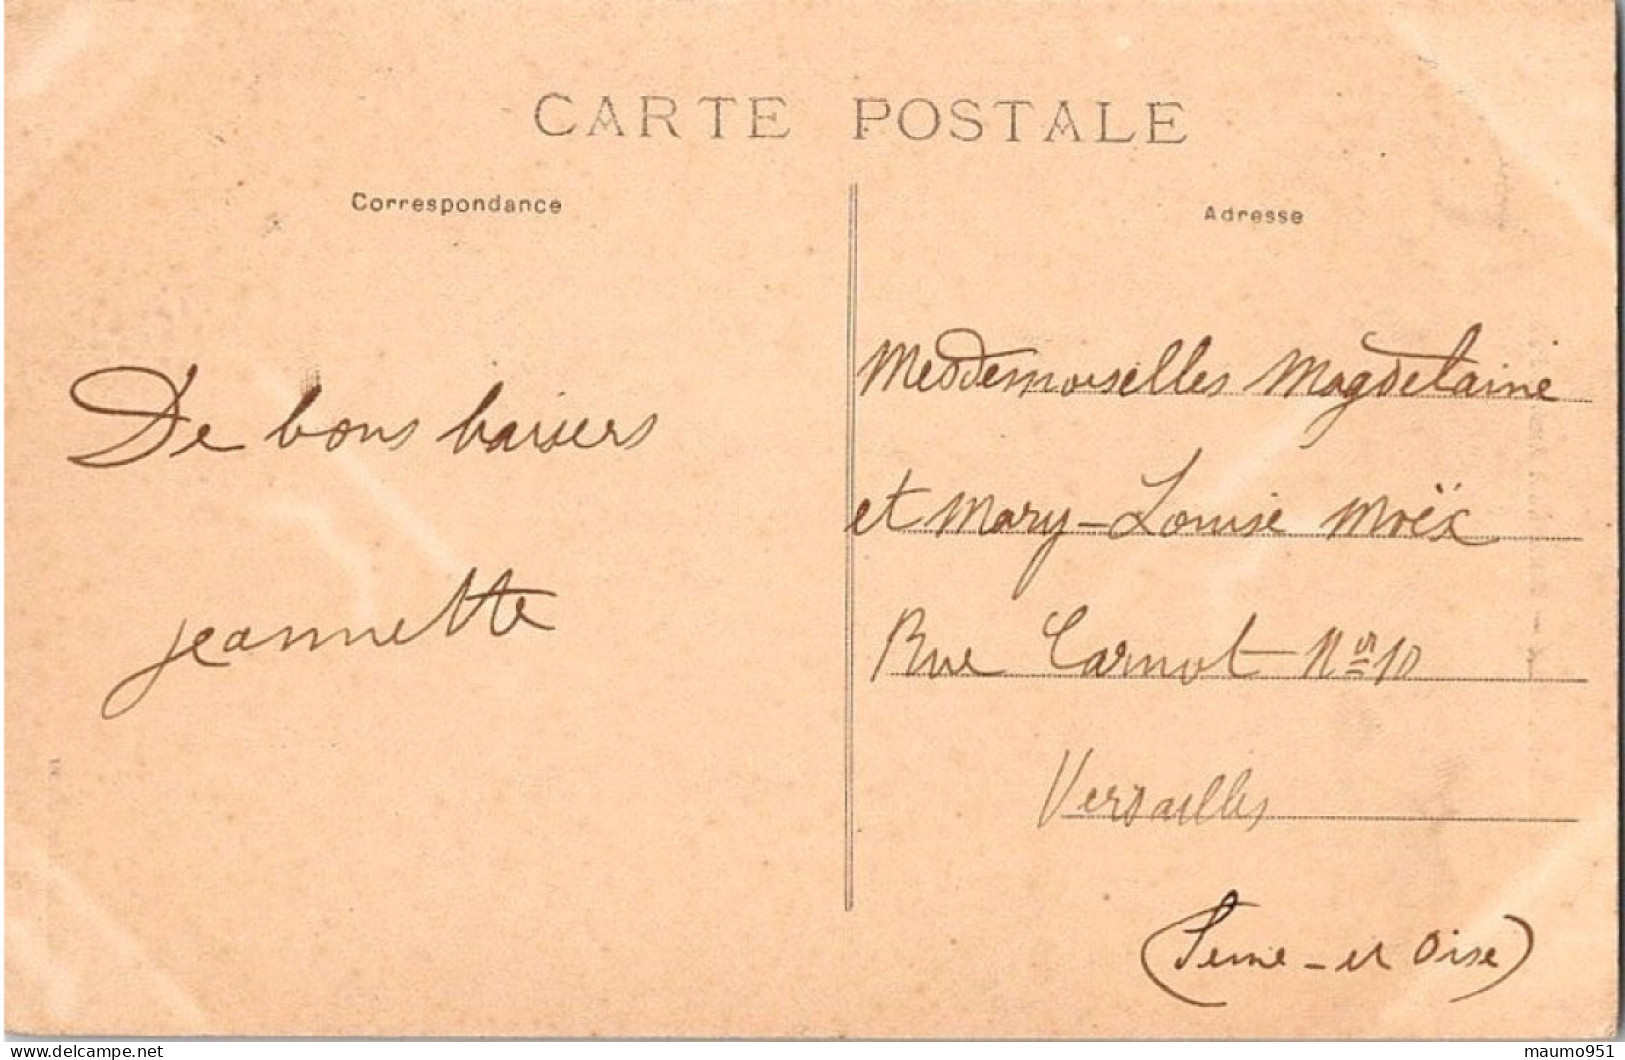 CARTE POSTALE
Correspondance
Adresse
De bons baisers
jeannette
Mesdemoiselles Magdelaine
et Mary-Louise Moëx
Rue Carnot Nº 10
Versailles
(Seine-et Oise)
delcampe.net
maumo951